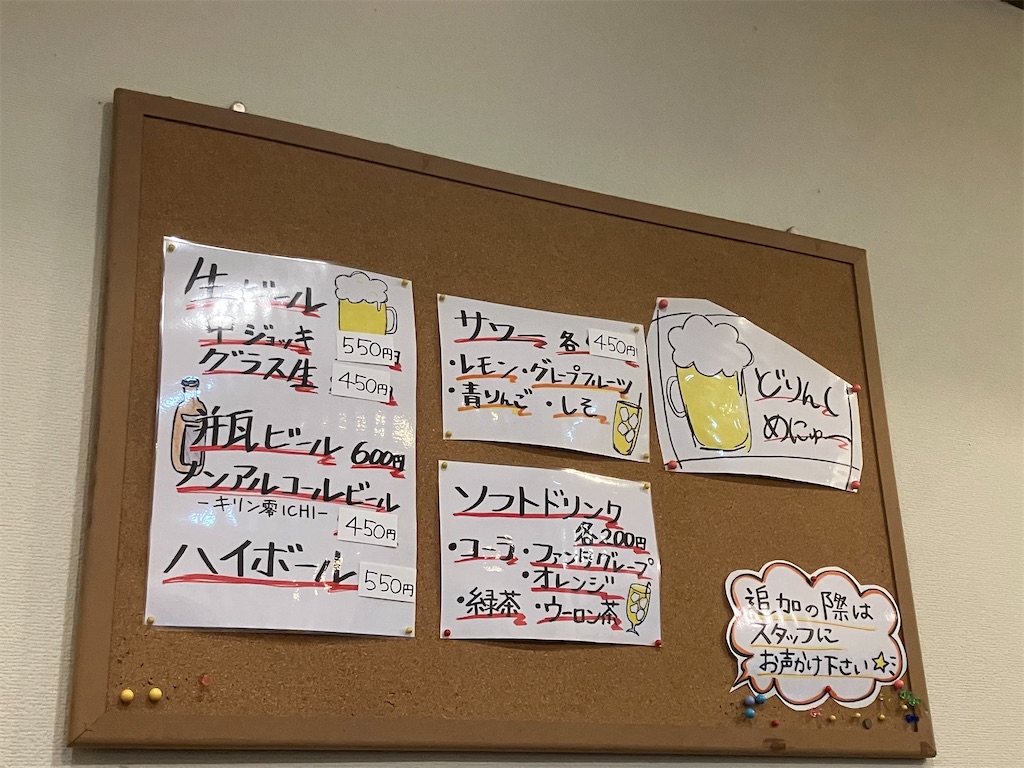 生ビール
中ジョッキ 550円
グラス生 450円
瓶ビール 600円
ノンアルコールビール
ーキリン零ICHIー
450円
ハイボール 550円
サワー 各 450円
・レモン・グレープフルーツ
・青りんご ・しそ
ソフトドリンク
各200円
・コーラ・ファンタグレープ
・オレンジ
・緑茶 ・ウーロン茶
どりんく
めにゅー
追加の際は
スタッフに
お声かけ下さい☆